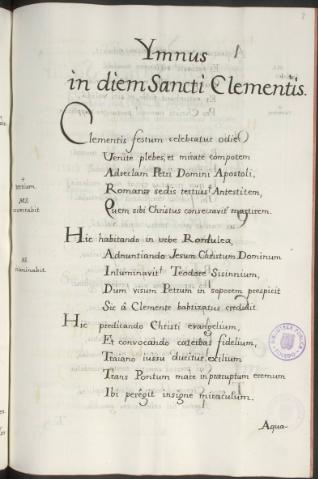 Ymnus
in diem Sancti Clementis.
Clementis festum celebratur odie
Venite plebes, et mirate compotem
Adseclam Petri Domini Apostoli,
Romanæ sedis tertius Antestitem,
Quem sibi Christus consecravit martirem.
Hic habitando in urbe Romulea,
Adnuntiando Jesum Christum Dominum
Inluminavit Teodore Sisinnium,
Dum visum Petrum in soporem perspicit
Sic á Clemente babtizatus credidit
Hic predicando Christi evangelium,
Et convocando caterbas fidelium,
Traiano iussu ducitur exilium
Trans Pontum mare in præruptum eremum
Ibi perêgit insigne miraculum.
Aqua-
tertium.
MS.
MS.